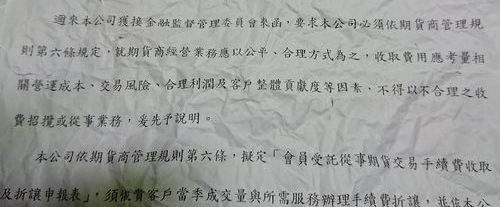 邇來本公司獲接金融監督管理委員會來函，要求本公司必須依期貨商管理規
則第六條規定，就期貨商經營業務應以公平、合理方式為之，收取費用應考量相
關營運成本、交易風險、合理利潤及客戶整體貢獻度等因素，不得以不合理之收
費招攬或從事業務，爰先予說明。
本公司依期貨商管理規則第六條，擬定「會員受託從事期貨交易手續費收取
及折讓申報表」，須依貴客戶當季成交量與所需服務辦理手續費折讓，並依本公